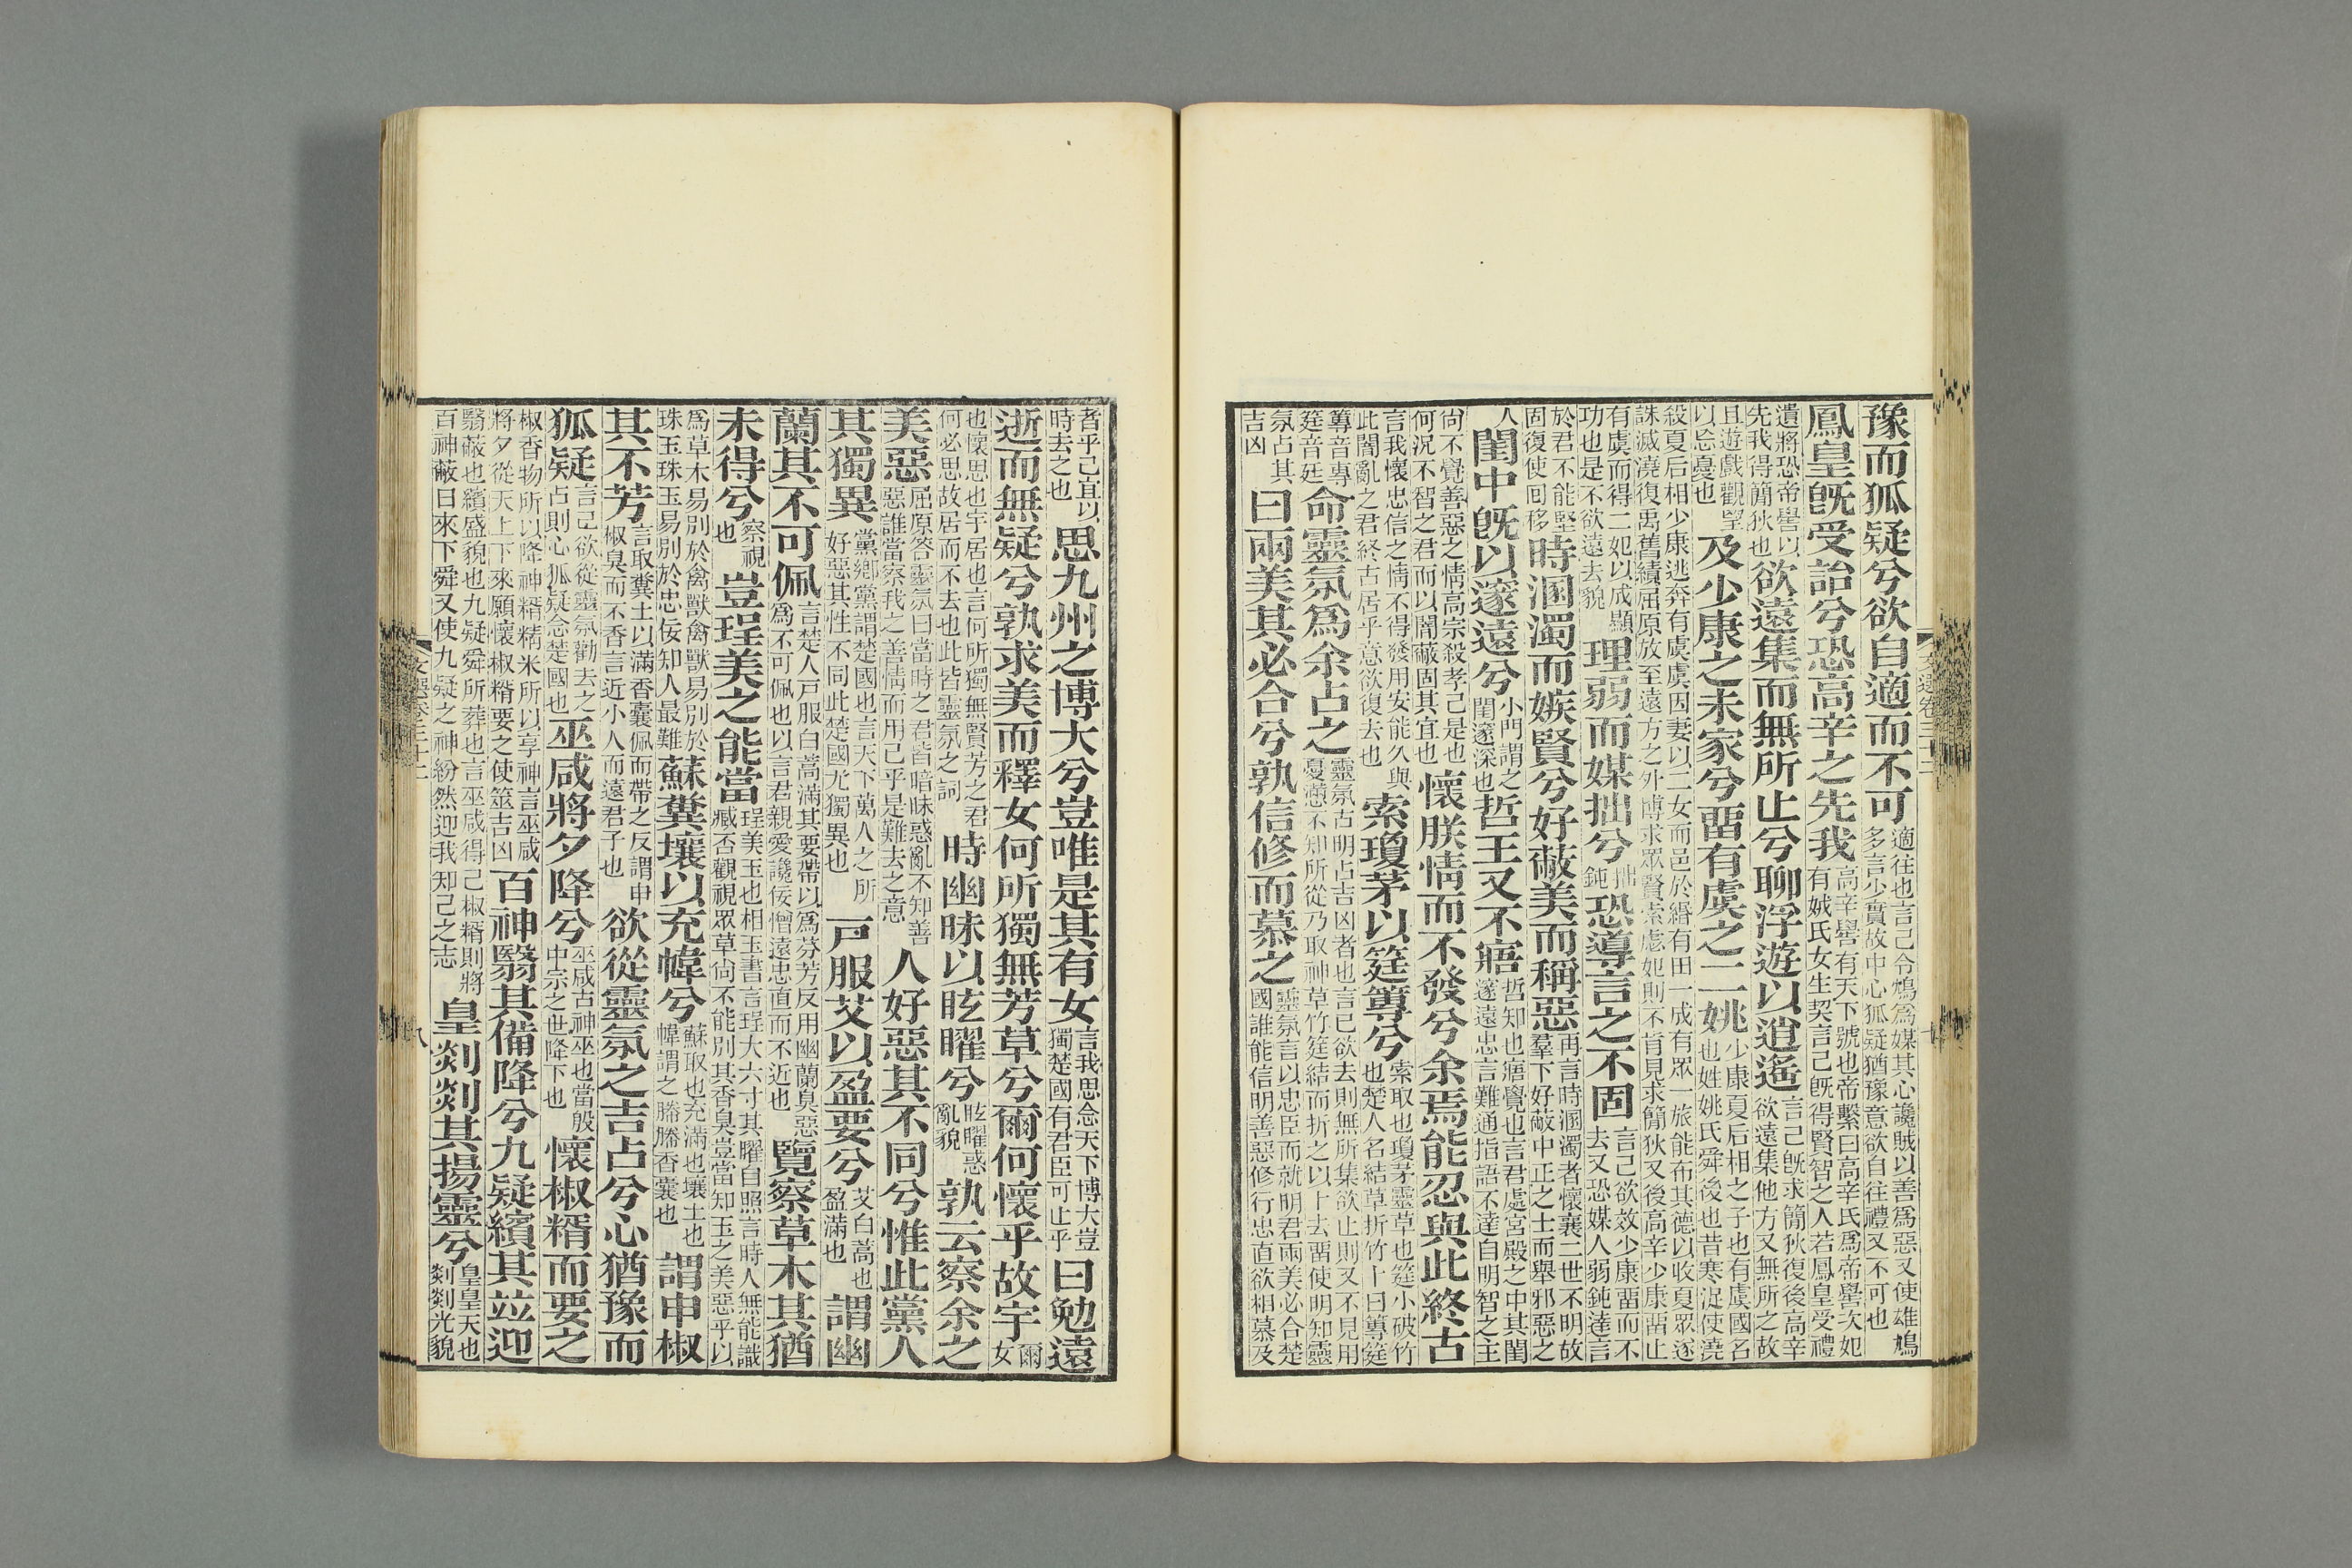 豫而狐疑兮欲自適而不可適往也言己令鴆爲媒其心讒賊以善爲惡又使雄鳩多言少實故中心狐疑猶豫意欲自往禮又不可也
鳳皇旣受詒兮恐高辛之先我高辛嚳有天下號也帝繫曰高辛氏爲帝嚳次妃有娀氏女生契言己旣得賢智之人若鳳皇受禮
遺將恐帝嚳以先我得簡狄也欲遠集而無所止兮聊浮遊以逍遙言己旣求簡狄復後高辛欲遠集他方又無所之故
且遊戲觀望以忘憂也及少康之未家兮畱有虞之二姚少康夏后相之子也有虞國名也姓姚氏舜後也昔寒浞使澆
殺夏后相少康逃奔有虞虞因妻以二女而邑於緡有田一成有眾一旅能布其德以收夏眾遂
誅滅澆復禹舊績屈原放至遠方之外博求眾賢索虙妃則不肯見求簡狄又後高辛少康畱止
有虞而得二妃以成顯功也是不欲遠去貌理弱而媒拙兮拙鈍恐導言之不固言己欲效少康畱而不去又恐媒人弱鈍達言
於君不能堅固復使回移時溷濁而嫉賢兮好蔽美而稱惡再言時溷濁者懷襄二世不明故羣下好蔽中正之士而舉邪惡之
人閨中旣以邃遠兮小門謂之閨邃深也哲王又不寤哲知也寤覺也言君處宮殿之中其閨邃遠忠言難通指語不達自明智之主
尙不覺善惡之情高宗殺孝己是也何況不智之君而以闇蔽固其宜也懷朕情而不發兮余焉能忍與此終古
言我懷忠信之情不得發用安能久與此闇亂之君終古居乎意欲復去也索瓊茅以筳篿兮索取也瓊茅靈草也筳小破竹也楚人名結草折竹卜曰篿筳
篿音專筳音廷命靈氛爲余占之靈氛古明占吉凶者也言己欲去則無所集欲止則又不見用憂懣不知所從乃取神草竹筳結而折之以卜去畱使明知靈
氛占其吉凶曰兩美其必合兮孰信修而慕之靈氛言以忠臣而就明君兩美必合楚國誰能信明善惡修行忠直欲相慕及
者乎己宜以時去之也思九州之博大兮豈唯是其有女言我思念天下博大豈獨楚國有君臣可止乎曰勉遠
逝而無疑兮孰求美而釋女何所獨無芳草兮爾何懷乎故宇爾女
也懷思也宇居也言何所獨無賢芳之君何必思故居而不去也此皆靈氛之詞時幽昧以眩曜兮眩曜惑亂貌孰云察余之
美惡屈原答靈氛曰當時之君皆暗昧惑亂不知善惡誰當察我之善情而用己乎是難去之意人好惡其不同兮惟此黨人
其獨異黨鄉黨謂楚國也言天下萬人之所好惡其性不同此楚國尤獨異也戶服艾以盈要兮艾白蒿也盈滿也謂幽
蘭其不可佩言楚人戶服白蒿滿其要帶以爲芬芳反用幽蘭臭惡爲不可佩也以言君親愛讒佞憎遠忠直而不近也覽察草木其猶
未得兮察視也豈珵美之能當珵美玉也相玉書言珵大六寸其曜自照言時人無能識臧否觀視眾草尙不能別其香臭豈當知玉之美惡乎以
爲草木易別於禽獸禽獸易別於珠玉珠玉易別於忠佞知人最難蘇糞壤以充幃兮蘇取也充滿也壤土也幃謂之幐幐香囊也謂申椒
其不芳言取糞土以滿香囊佩而帶之反謂申椒臭而不香言近小人而遠君子也欲從靈氛之吉占兮心猶豫而
狐疑言己欲從靈氛勸去之占則心狐疑念楚國也巫咸將夕降兮巫咸古神巫也當殷中宗之世降下也懷椒糈而要之
椒香物所以降神糈精米所以享神言巫咸將夕從天上下來願懷椒糈要之使筮吉凶百神翳其備降兮九疑繽其竝迎
翳蔽也繽盛貌也九疑舜所葬也言巫咸得己椒糈則將百神蔽日來下舜又使九疑之神紛然迎我知己之志皇剡剡其揚靈兮皇皇天也剡剡光貌
文選卷三十二
八